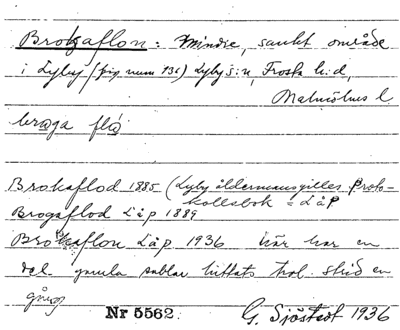 Brokaflon: Mindre, sankt område
i Lyby (fig num 136) Lyby s:n, Frosta h:d,
Malmöhus l
braga flå
Brokaflod 1885 (Lyby åldermansgilles Proto-
kollsbok = LåP
Brogaflod LåP 1889
Brokaflon LåP 1936 här har en
del gamla sablar hittats trol. strid en
gång
Nr 5562. G. Sjöstedt 1936